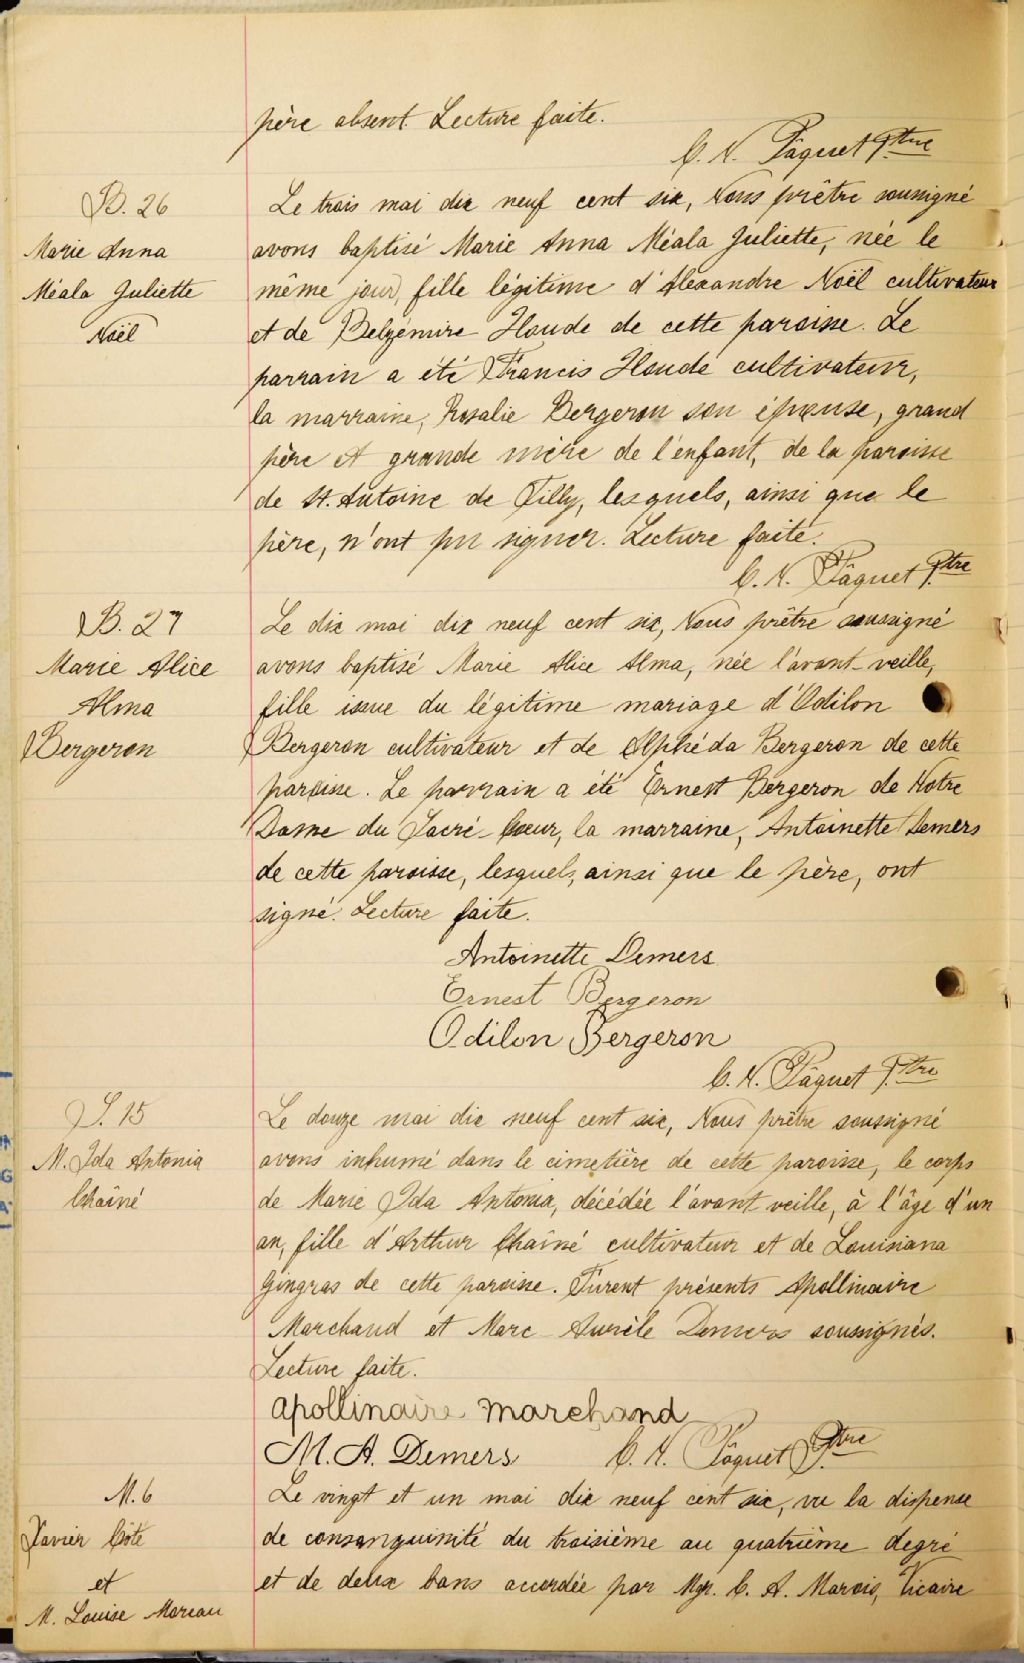 père absent. Lecture faite.
C. N. Pâquet Ptre
B. 26
Marie Anna
Méala Juliette
Noël
Le trois mai dix neuf cent six, Nous prêtre soussigné
avons baptisé Marie Anna Méala Juliette, née le
même jour, fille légitime d'Alexandre Noël cultivateur
et de Belzémire Houde de cette paroisse. Le
parrain a été Francis Houde cultivateur,
la marraine, Rosalie Bergeron son épouse, grand
père et grande mère de l'enfant, de la paroisse
de St. Antoine de Tilly, lesquels, ainsi que le
père, n'ont pu signer. Lecture faite.
C. N. Pâquet Ptre
B. 27
Marie Alice
Alma
Bergeron
Le dix mai dix neuf cent six, Nous prêtre soussigné
avons baptisé Marie Alice Alma, née l'avant-veille,
fille issue du légitime mariage d'Odilon
Bergeron cultivateur et de Alphéda Bergeron de cette
paroisse. Le parrain a été Ernest Bergeron de Notre
Dame du Sacré-Coeur, la marraine, Antoinette Demers
de cette paroisse, lesquels, ainsi que le père, ont
signé. Lecture faite.
Antoinette Demers
Ernest Bergeron
Odilon Bergeron
C. N. Pâquet Ptre
S. 15
M. Ida Antonia
Chaîné
Le douze mai dix neuf cent six, Nous prêtre soussigné
avons inhumé dans le cimetière de cette paroisse, le corps
de Marie Ida Antonia, décédée l'avant veille, à l'âge d'un
an, fille d'Arthur Chaîné cultivateur et de Louisiana
Gingras de cette paroisse. Furent présents Apollinaire
Marchand et Marc Aurèle Demers soussignés.
Lecture faite.
Apollinaire Marchand
M. A. Demers C. N. Pâquet Ptre
M. 6
Xavier Côté
et
M. Louise Moreau
Le vingt et un mai dix neuf cent six, vu la dispense
de consanguinité du troisième au quatrième degré
et de deux bans accordée par Mgr. C. A. Marois, Vicaire